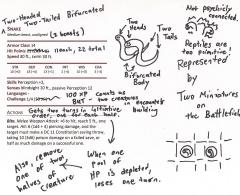 Two-Headed
Two-Tailed Bifurcated
SNAKE
(2 beasts)
Medium beast, unaligned
Armor Class 14
each, 22 total
Speed 30 ft., swim 30 ft.
STR DEX CON INT WIS CHA
Skills Perception +2,
Senses blindsight 10 ft., passive Perception 12
Languages -
Challenge 1/4 (50
100 XP counts as
BUT 2 creatures in encounter building
ACTIONS
Gets two turns in initiative
order, one for each half.
Bite. Melee Weapon Attack: +6 to hit, reach 5 ft., one
target. Hit: 6 (1d4 + 4) piercing damage, and the
target must make a DC 11 Constitution saving throw,
taking 10 (3d6) poison damage on a failed save, or
half as much damage on a successful one.
Also, remove
one of
two
halves of
creature
When one
set of
HP is depleted,
loses one turn.
Two
Heads
Two
Tails
Bifurcated
Body
Not psychically
connected.
Reptiles are
too primitive.
Represented
by
Two Miniatures
on the Battlefield